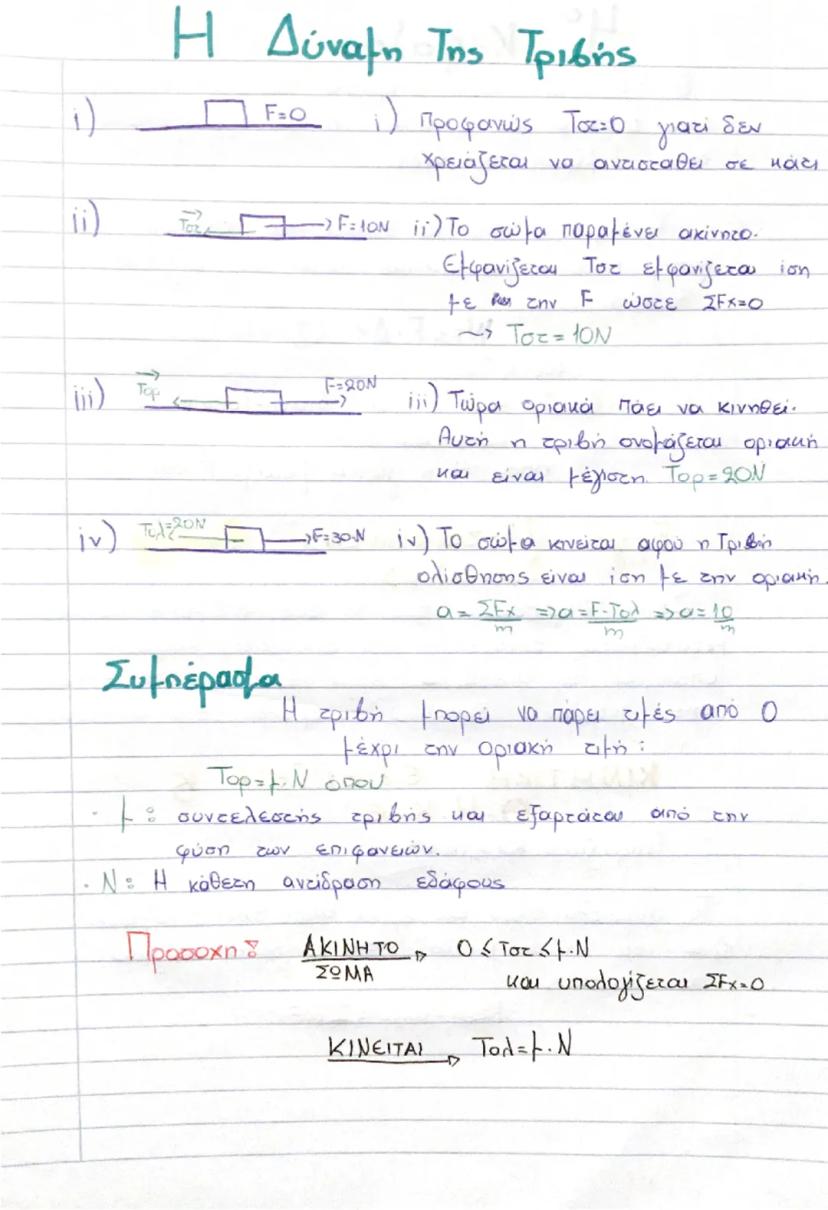 Η Δύναμη Της Τριβής
i) F=0 i) Προφανώς Τστ=0 γιατί δεν
χρειάζεται να αντισταθεί σε κάτι
ii) Τστ F=10N ii) Το σώμα παραμένει ακίνητο.
Εμφανίζεται Τστ εμφανίζεται ίση
με την F ώστε ΣFx=0
~> Τστ = 10N
iii) Τορ F=20N iii) Τώρα οριακά πάει να κινηθεί.
Αυτή η τριβή ονομάζεται οριακή
και είναι μέγιστη. Τορ=20N
iv) Τολ=20N F=30N iv) Το σώμα κινείται αφού η Τριβή
ολίσθησης είναι ίση με την οριακή.
a = ΣFx/m => a = F-Τολ/m => a = 10/m
Συμπέρασμα
Η τριβή μπορεί να πάρει τιμές από 0
μέχρι την οριακή τιμή:
Τορ=μ.N όπου
· μ: συντελεστής τριβής και εξαρτάται από την
φύση των επιφανειών.
· N: Η κάθετη αντίδραση εδάφους
Προσοχη! ΑΚΙΝΗΤΟ ΣΩΜΑ → 0 ≤ Τστ ≤ μ.N
και υπολογίζεται ΣFx=0
ΚΙΝΕΙΤΑΙ → Τολ=μ.N